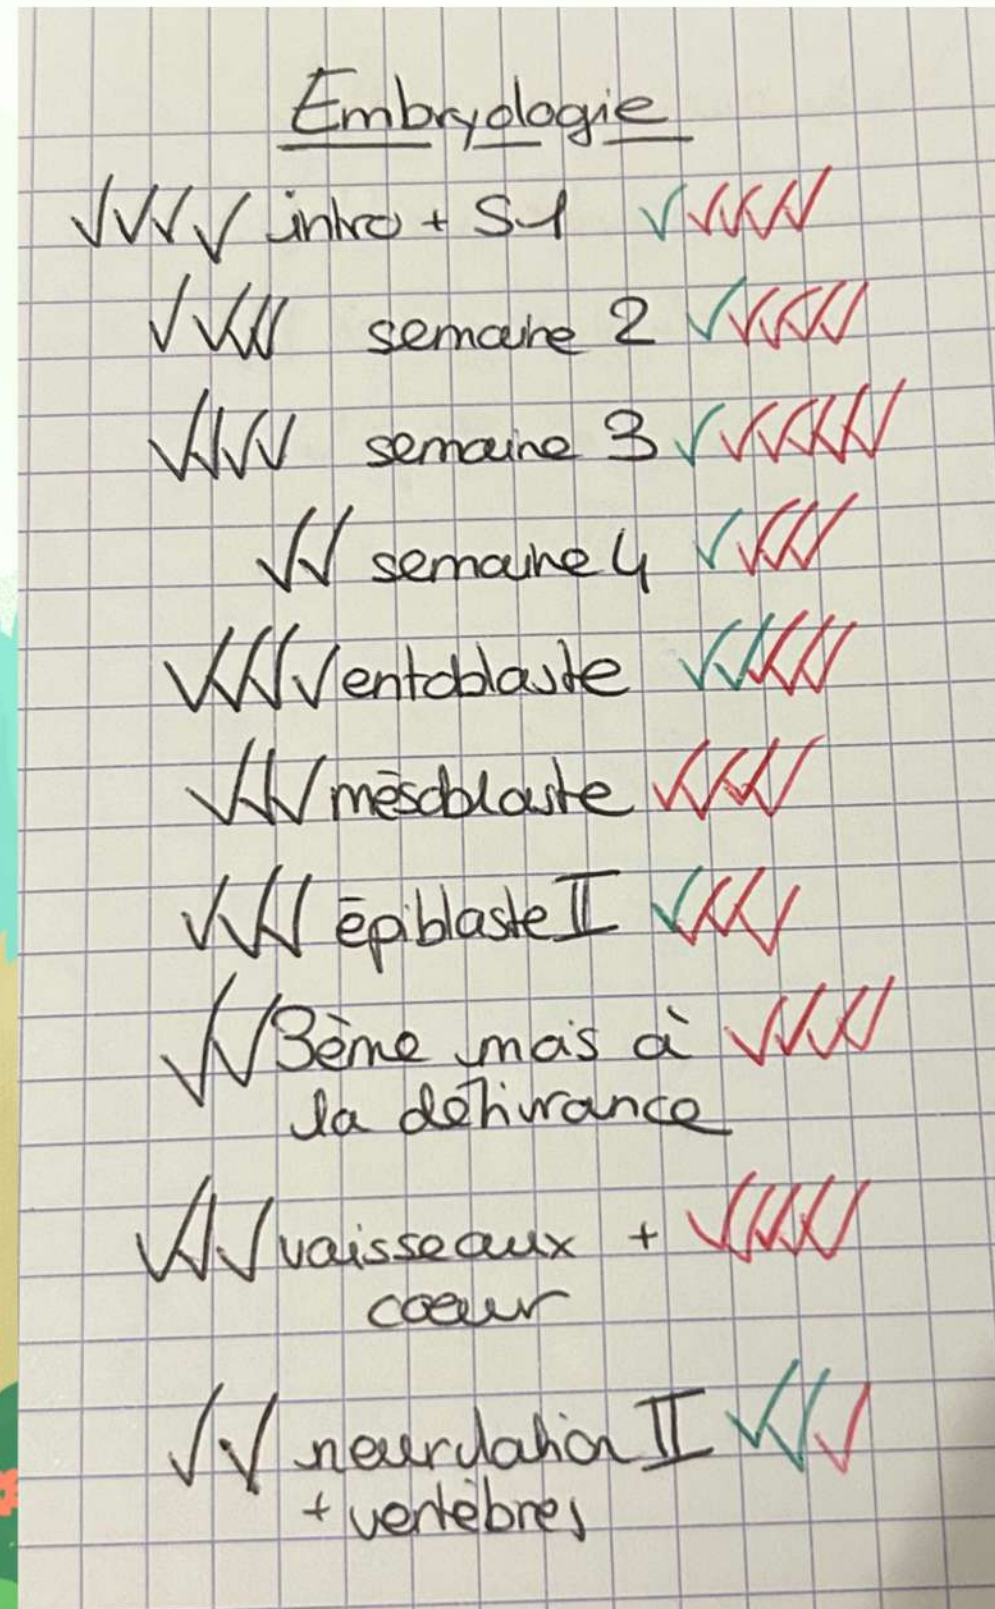 Embryologie
intro + S1
semaine 2
semaine 3
semaine 4
entoblaste
mésoblaste
épiblaste II
3ème mois à
la délivrance
vaisseaux +
coeur
neurulation II
+ vertèbres